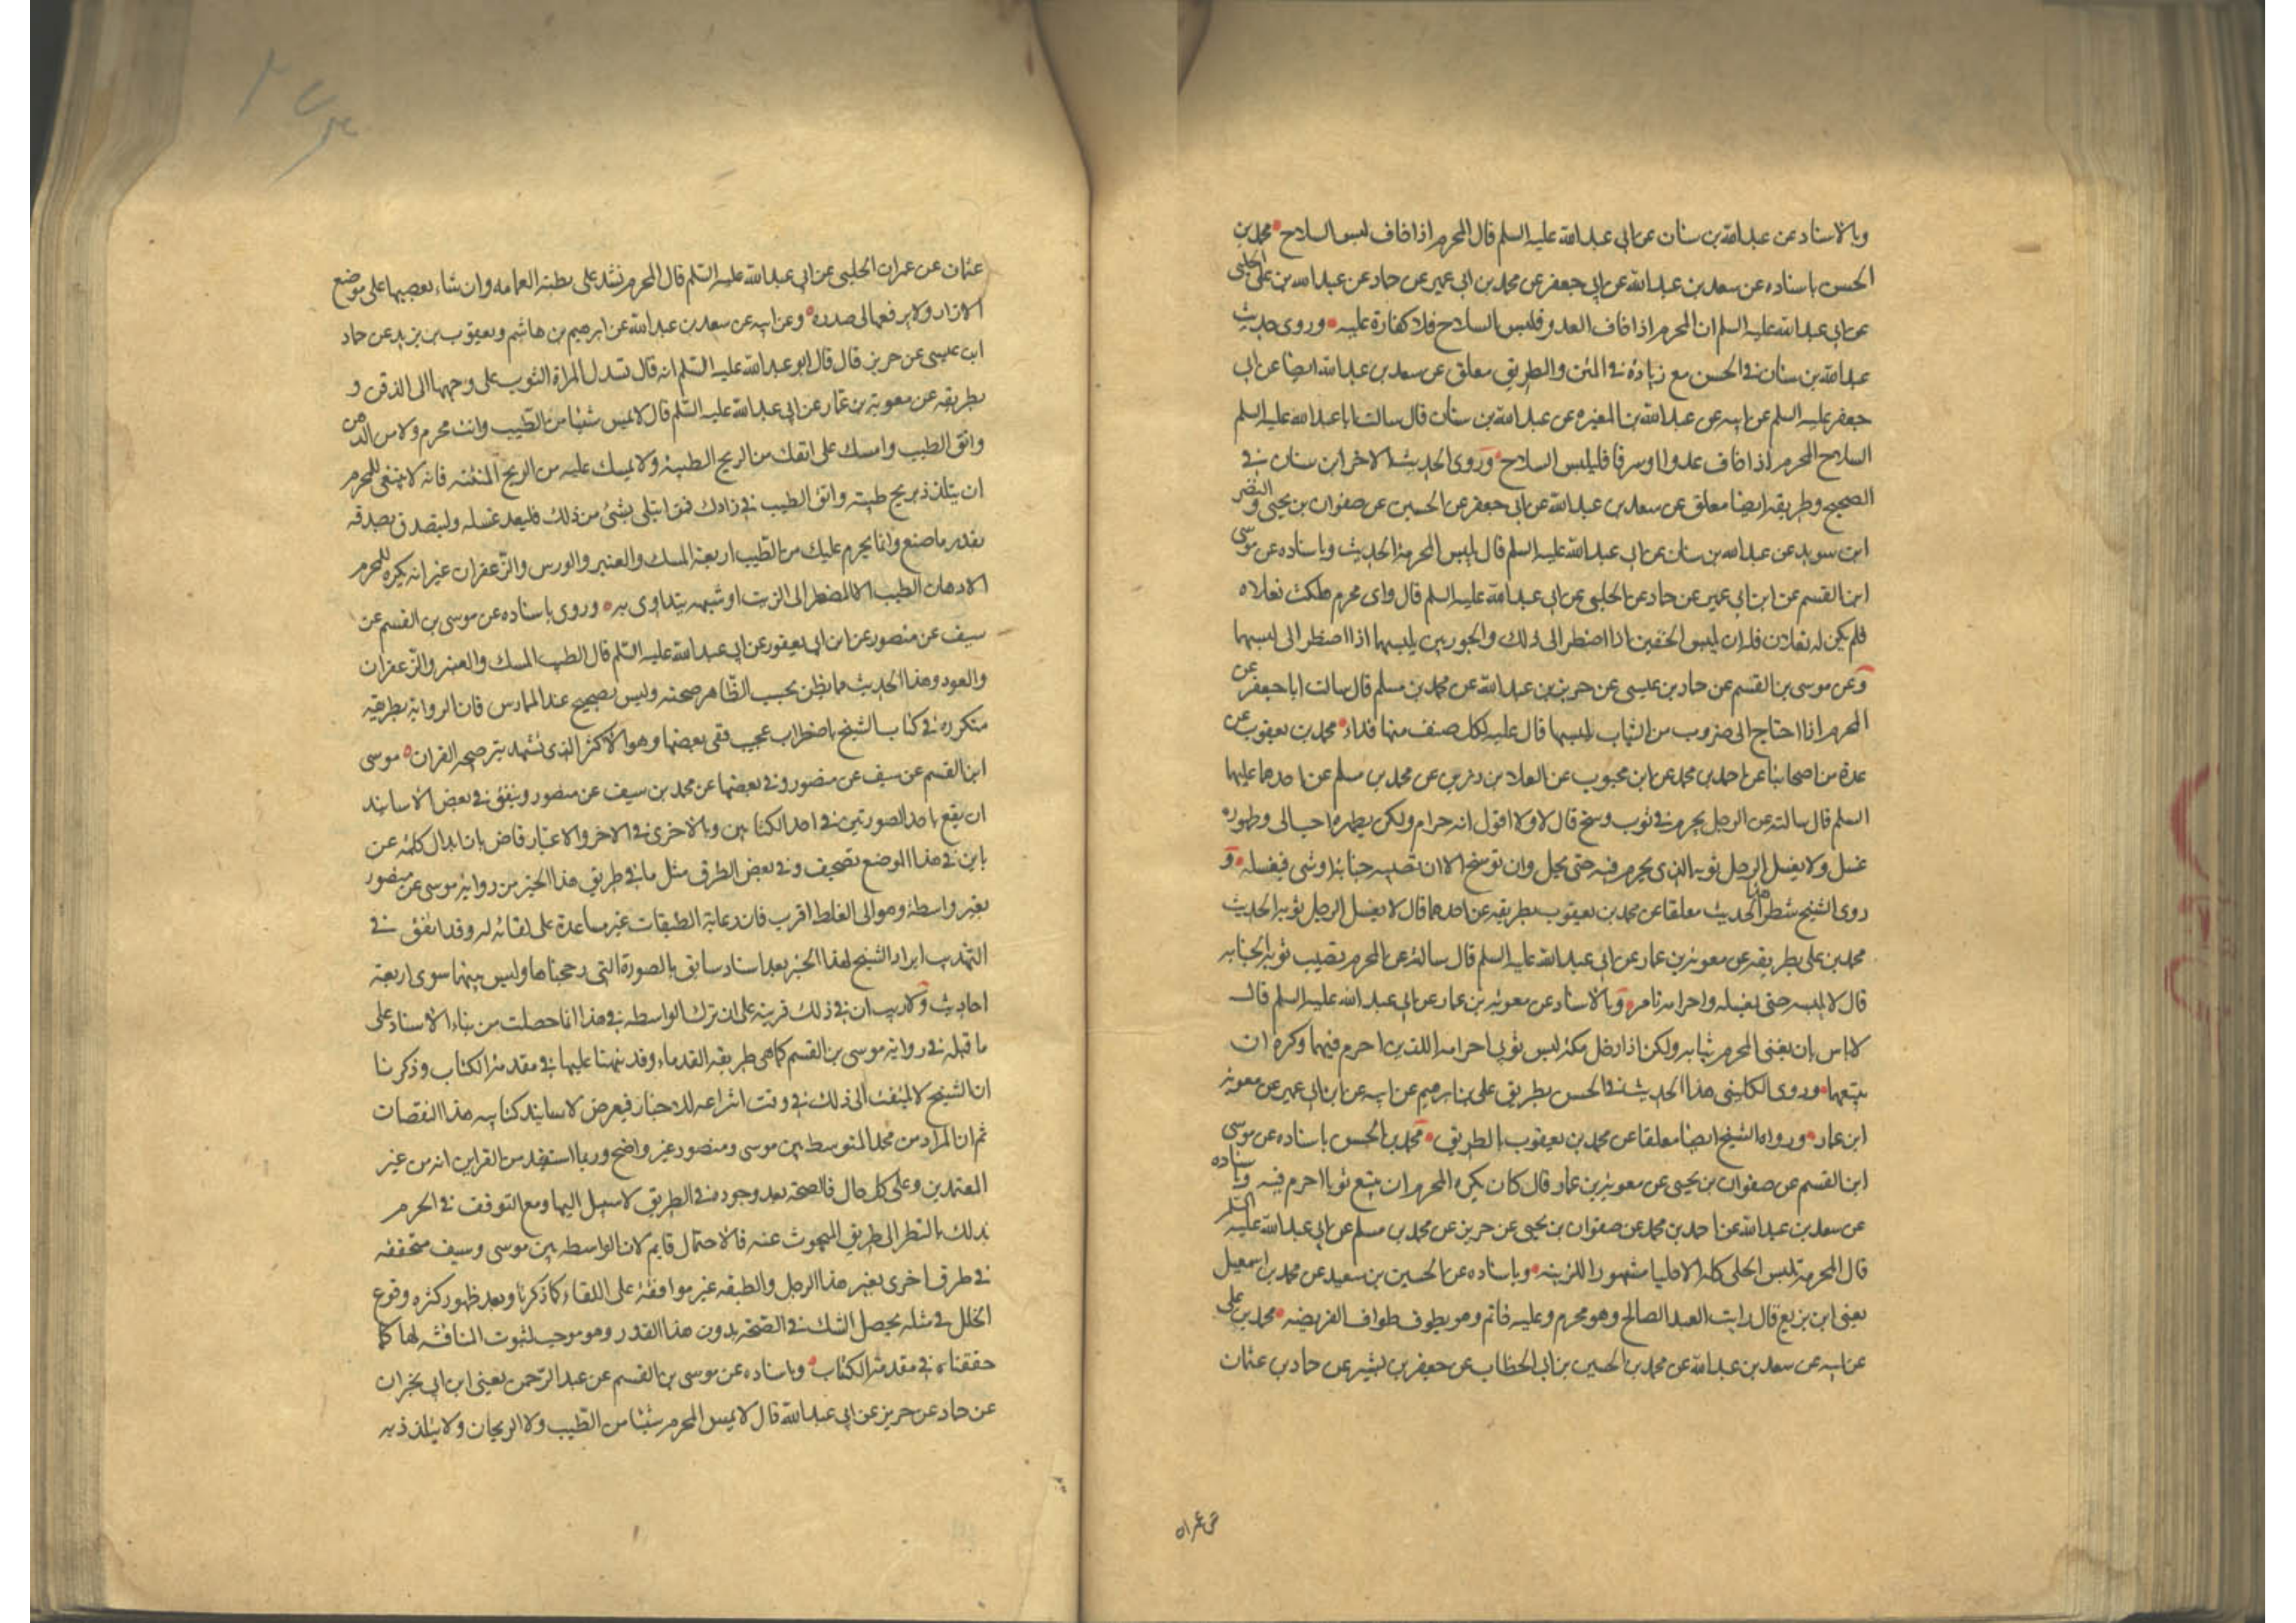 وبالاسناد عن عبدالله بن سنان عن ابى عبدالله عليه السلم قال المحرم اذا خاف لبس السلاح محمد بن
الحسن باسناده عن سعد بن عبدالله عن ابى جعفر عن محمد بن ابى عمير عن حماد عن عبيدالله بن على الحلبى
عن ابى عبدالله عليه السلم ان المحرم اذا خاف العدو فلبس السلاح فلا كفارة عليه وروى حديث
عبدالله بن سنان فى الحسن مع زيادة فى المتن والطريق معلق عن سعد بن عبدالله ايضا عن ابى
جعفر عليه السلم عن ابيه عن عبدالله بن المغيره عن عبدالله بن سنان قال سالت ابا عبدالله عليه السلم
السلاح المحرم اذا خاف عدوا او سرقا فليلبس السلاح وروى الحديث الاخر ابن سنان فى
الصحيح وطريقه ايضا معلق عن سعد بن عبدالله عن ابى جعفر عن الحسين عن صفوان بن يحيى والنضر
ابن سويد عن عبدالله بن سنان عن ابى عبدالله عليه السلم قال يلبس المحرم الحديث وباسناده عن موسى
ابن القسم عن ابن ابى عمير عن حماد عن الحلبى عن ابى عبدالله عليه السلم قال واى محرم هلكت نعلاه
فلم يكن له نعلان فله ان يلبس الخفين اذا اضطر الى ذلك والجوربين يلبسهما اذا اضطر الى لبسهما
وعن موسى بن القسم عن حماد بن عيسى عن حريز بن عبدالله عن محمد بن مسلم قال سالت ابا جعفر عن
المحرم اذا احتاج الى ضروب من الثياب يلبسها قال عليه لكل صنف منها فداء محمد بن يعقوب عن
عدة من اصحابنا عن احمد بن محمد عن ابن محبوب عن العلا بن رزين عن محمد بن مسلم عن احدهما عليهما
السلم قال سالته عن الرجل يحرم فى ثوب وسخ قال لا ولا اقول انه حرام ولكن يطهره احب الى وطهوره
غسله ولا يغسل الرجل ثوبه الذى يحرم فيه حتى يحل وان توسخ الا ان تصيبه جنابة او شى فيغسله و
روى الشيخ شطر هذا الحديث معلقا عن محمد بن يعقوب بطريقه عن احدهما قال لا يغسل الرجل ثوبه الحديث
محمد بن على بطريقه عن معوية بن عمار عن ابى عبدالله عليه السلم قال سالته عن المحرم تصيب ثوبه الجنابه
قال لا يلبسه حتى يغسله واحرامه تام وبالاسناد عن معوية بن عمار عن ابى عبدالله عليه السلم قال
لا باس بان يغير المحرم ثيابه ولكن اذا دخل مكة لبس ثوبى احرامه اللذين احرم فيهما وكره ان
يبيعهما وروى الكلينى هذا الحديث فى الحسن بطريق على بن ابرهيم عن ابيه عن ابن ابى عمير عن معوية
ابن عمار ورواه الشيخ ايضا معلقا عن محمد بن يعقوب بالطريق محمد بن الحسن باسناده عن موسى
ابن القسم عن صفوان بن يحيى عن معوية بن عمار قال كان يكره المحرم ان يبيع ثوبا احرم فيه وباسناده
عن سعد بن عبدالله عن احمد بن محمد عن صفوان بن يحيى عن حريز عن محمد بن مسلم عن ابى عبدالله عليه السلم
قال المحرمة تلبس الحلى كله الا حليا مشهورا للزينة وباسناده عن الحسين بن سعيد عن محمد بن اسمعيل
يعنى ابن بزيع قال رايت العبد الصالح وهو محرم وعليه خاتم وهو يطوف طواف الفريضه محمد بن على
عن ابيه عن سعد بن عبدالله عن محمد بن الحسين بن ابى الخطاب عن جعفر بن بشير عن حماد بن عثمان
عن عمران
عثمان عن عمران الحلبى عن ابى عبدالله عليه السلم قال المحرم يشد على بطنه العمامه وان شاء يعصبها على موضع
الازار ولا يرفعها الى صدره وعن ابيه عن سعد بن عبدالله عن ابرهيم بن هاشم ويعقوب بن يزيد عن حماد
ابن عيسى عن حريز قال قال ابو عبدالله عليه السلم انه قال تسدل المراة الثوب على وجهها الى الذقن و
بطريقه عن معوية بن عمار عن ابى عبدالله عليه السلم قال لا يمس شيئا من الطيب وانت محرم ولا من الدهن
واتق الطيب وامسك على انفك من الريح الطيبة ولا يمسك عليه من الريح المنتنه فانه لا ينبغى للمحرم
ان يتلذذ بريح طيبه واتق الطيب فى زادك فمن ابتلى بشئ من ذلك فليعد غسله وليتصدق بصدقه
بقدر ما صنع وانما يحرم عليك من الطيب اربعة المسك والعنبر والورس والزعفران غير انه يكره للمحرم
الادهان الطيب الا المضطر الى الزيت او شبهه يتداوى به وروى باسناده عن موسى بن القسم عن
سيف عن منصور عن ابن ابى يعفور عن ابى عبدالله عليه السلم قال الطيب المسك والعنبر والزعفران
والعود وهذا الحديث مما يظن بحسب الظاهر صحته وليس بصحيح عند الممارس فان الرواية بطريقه
متكررة فى كتاب الشيخ باضطراب عجيب ففى بعضها وهو الاكثر الذى تشهد بترجيحه القران موسى
ابن القسم عن سيف عن منصور وفى بعضها عن محمد بن سيف عن منصور ويتفق فى بعض الاسانيد
ان يقع باحد الصورتين فى احد الكتابين وبالاخرى فى الاخر والاعتبار قاض بان ابدال كلمة عن
بابن فى هذا الموضع تصحيف وفى بعض الطرق مثل ما فى طريق هذا الخبر من رواية موسى عن منصور
بغير واسطة وهو الى الغلط اقرب فان رعاية الطبقات غير مساعدة على لقائه له وقد اتفق فى
التهذيب ايراد الشيخ لهذا الخبر بعد اسناد سابق بالصورة التى رجحناها وليس بينهما سوى اربعة
احاديث ولا ريب ان فى ذلك قرينة على ان ترك الواسطه فى هذا انما حصلت من بناء الاسناد على
ما قبله فى رواية موسى بن القسم كما هى طريقه القدماء وقد نبهنا عليها فى مقدمة الكتاب وذكرنا
ان الشيخ لا يلتفت الى ذلك فى وقت انتزاعه للاخبار فيعرض لاسانيد كتابيه هذا النقصان
ثم ان المراد من محمد المتوسط بين موسى ومنصور غير واضح وربما استفيد من القراين انه من غير
المعتمدين وعلى كل حال فالصحة بعد وجوده فى الطريق لا سبيل اليها ومع التوقف فى الجزم
بذلك بالنظر الى طريق المبحوث عنه فالاحتمال قايم لان الواسطه بين موسى وسيف متحققه
فى طرق اخرى بغير هذا الرجل والطبقه غير موافقة على اللقاء كما ذكرنا وبعد ظهور كثرة وقوع
الخلل فى مثله يحصل الشك فى الصحة بدون هذا القدر وهو موجب لثبوت المنافية لها كما
حققناه فى مقدمة الكتاب وباسناده عن موسى بن القسم عن عبد الرحمن يعنى ابن ابى نجران
عن حماد عن حريز عن ابى عبدالله قال لا يمس المحرم شيئا من الطيب ولا الريحان ولا يتلذذ به